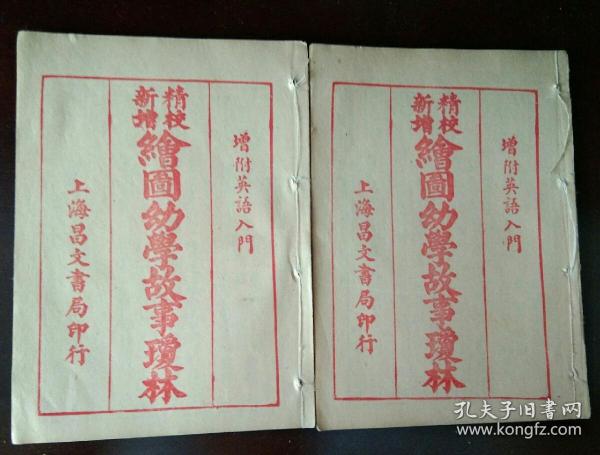 增附英語入門
精校
新增
繪圖幼學故事瓊林
上海昌文書局印行
增附英語入門
精校
新增
繪圖幼學故事瓊林
上海昌文書局印行
孔夫子旧书网
www.kongfz.com